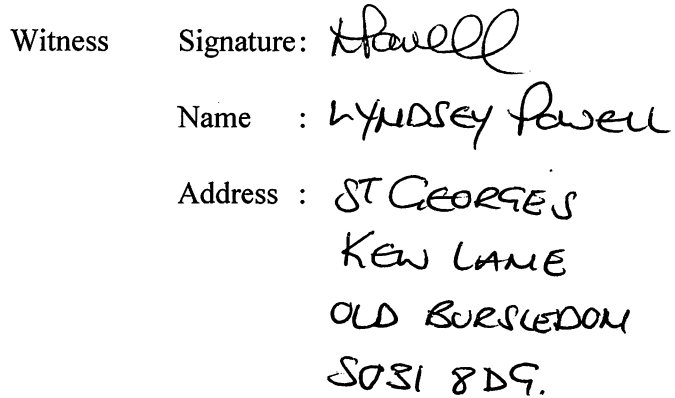 Witness Signature: LPowell
Name : LYNDSEY POWELL
Address : ST GEORGES
KEW LANE
OLD BURSLEDON
SO31 8DG.